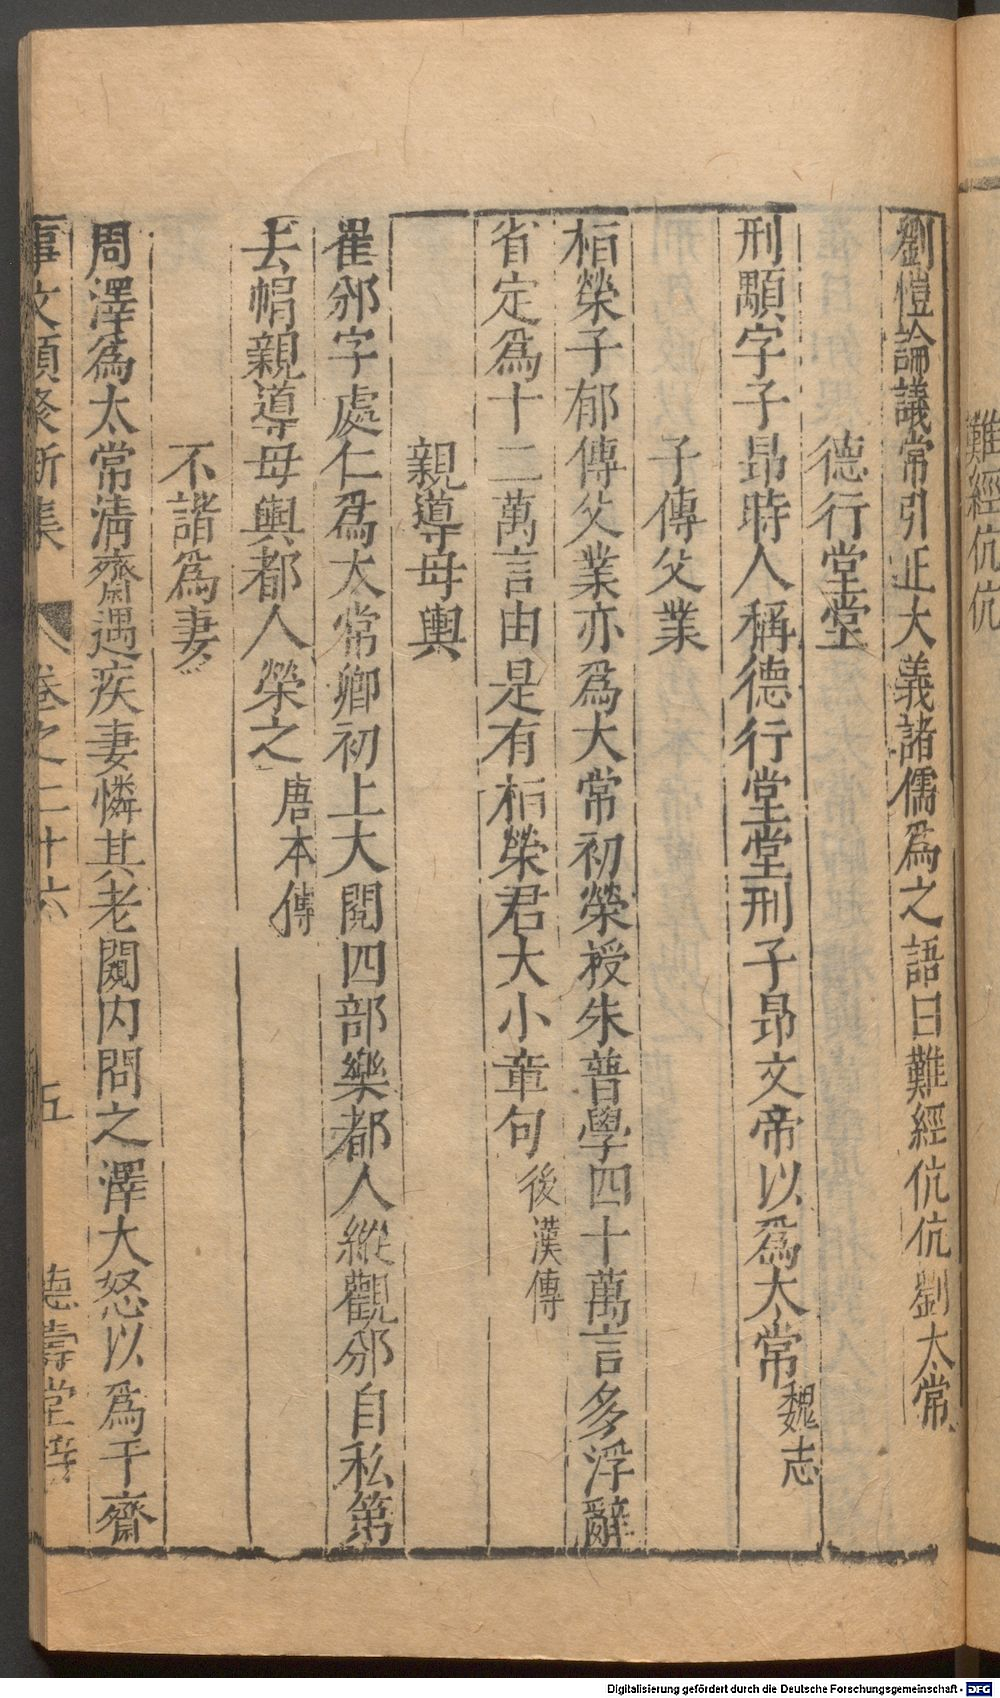 難經伉伉
劉愷論議常引正大義諸儒爲之語曰難經伉伉劉太常
德行堂堂
刑顒字子昂時人稱德行堂堂刑子昂文帝以爲太常魏志
子傳父業
桓榮子郁傳父業亦爲大常初榮授朱普學四十萬言多浮辭
省定爲十二萬言由是有桓榮君大小章句後漢傳
親導母輿
崔邠字處仁爲太常卿初上大閱四部樂都人縱觀邠自私第
去帽親導母輿都人榮之唐本傳
不諧爲妻
周澤爲太常淸齋遇疾妻憐其老闚内問之澤大怒以爲干齋
事文類聚新集 卷之二十六 五 德壽堂梓
Digitalisierung gefördert durch die Deutsche Forschungsgemeinschaft - DFG